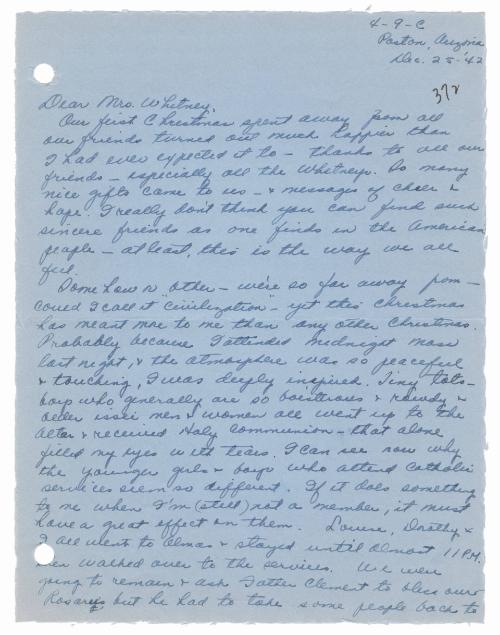 4-9-C
Poston, Arizona
Dec. 25-'42
372
Dear Mrs. Whitney,
Our first Christmas spent away from all
our friends turned out much happier than
I had ever expected it to - thanks to all our
friends - especially all the Whitneys. So many
nice gifts came to us - & messages of cheer &
hope. I really don't think you can find such
sincere friends as one finds in the American
people - at least, this is the way we all
feel.
Somehow or other - we're so far away from -
could I call it "civilization" - yet this Christmas
has meant more to me than any other Christmas.
Probably because I attended midnight mass
last night, & the atmosphere was so peaceful
& touching, I was deeply inspired. Tiny tots -
boys who generally are so boisterous & rowdy &
older issei men & women all went up to the
altar & received Holy Communion - that alone
filled my eyes with tears. I can see now why
the younger girls & boys who attend Catholic
services seem so different. If it does something
to me when I'm (still) not a member, it must
have a great effect on them. Louise, Dorothy &
I all went to Alma's & stayed until almost 11 P.M.
then walked over to the services. We were
going to remain & ask Father Clement to bless our
Rosarys but he had to take some people back to